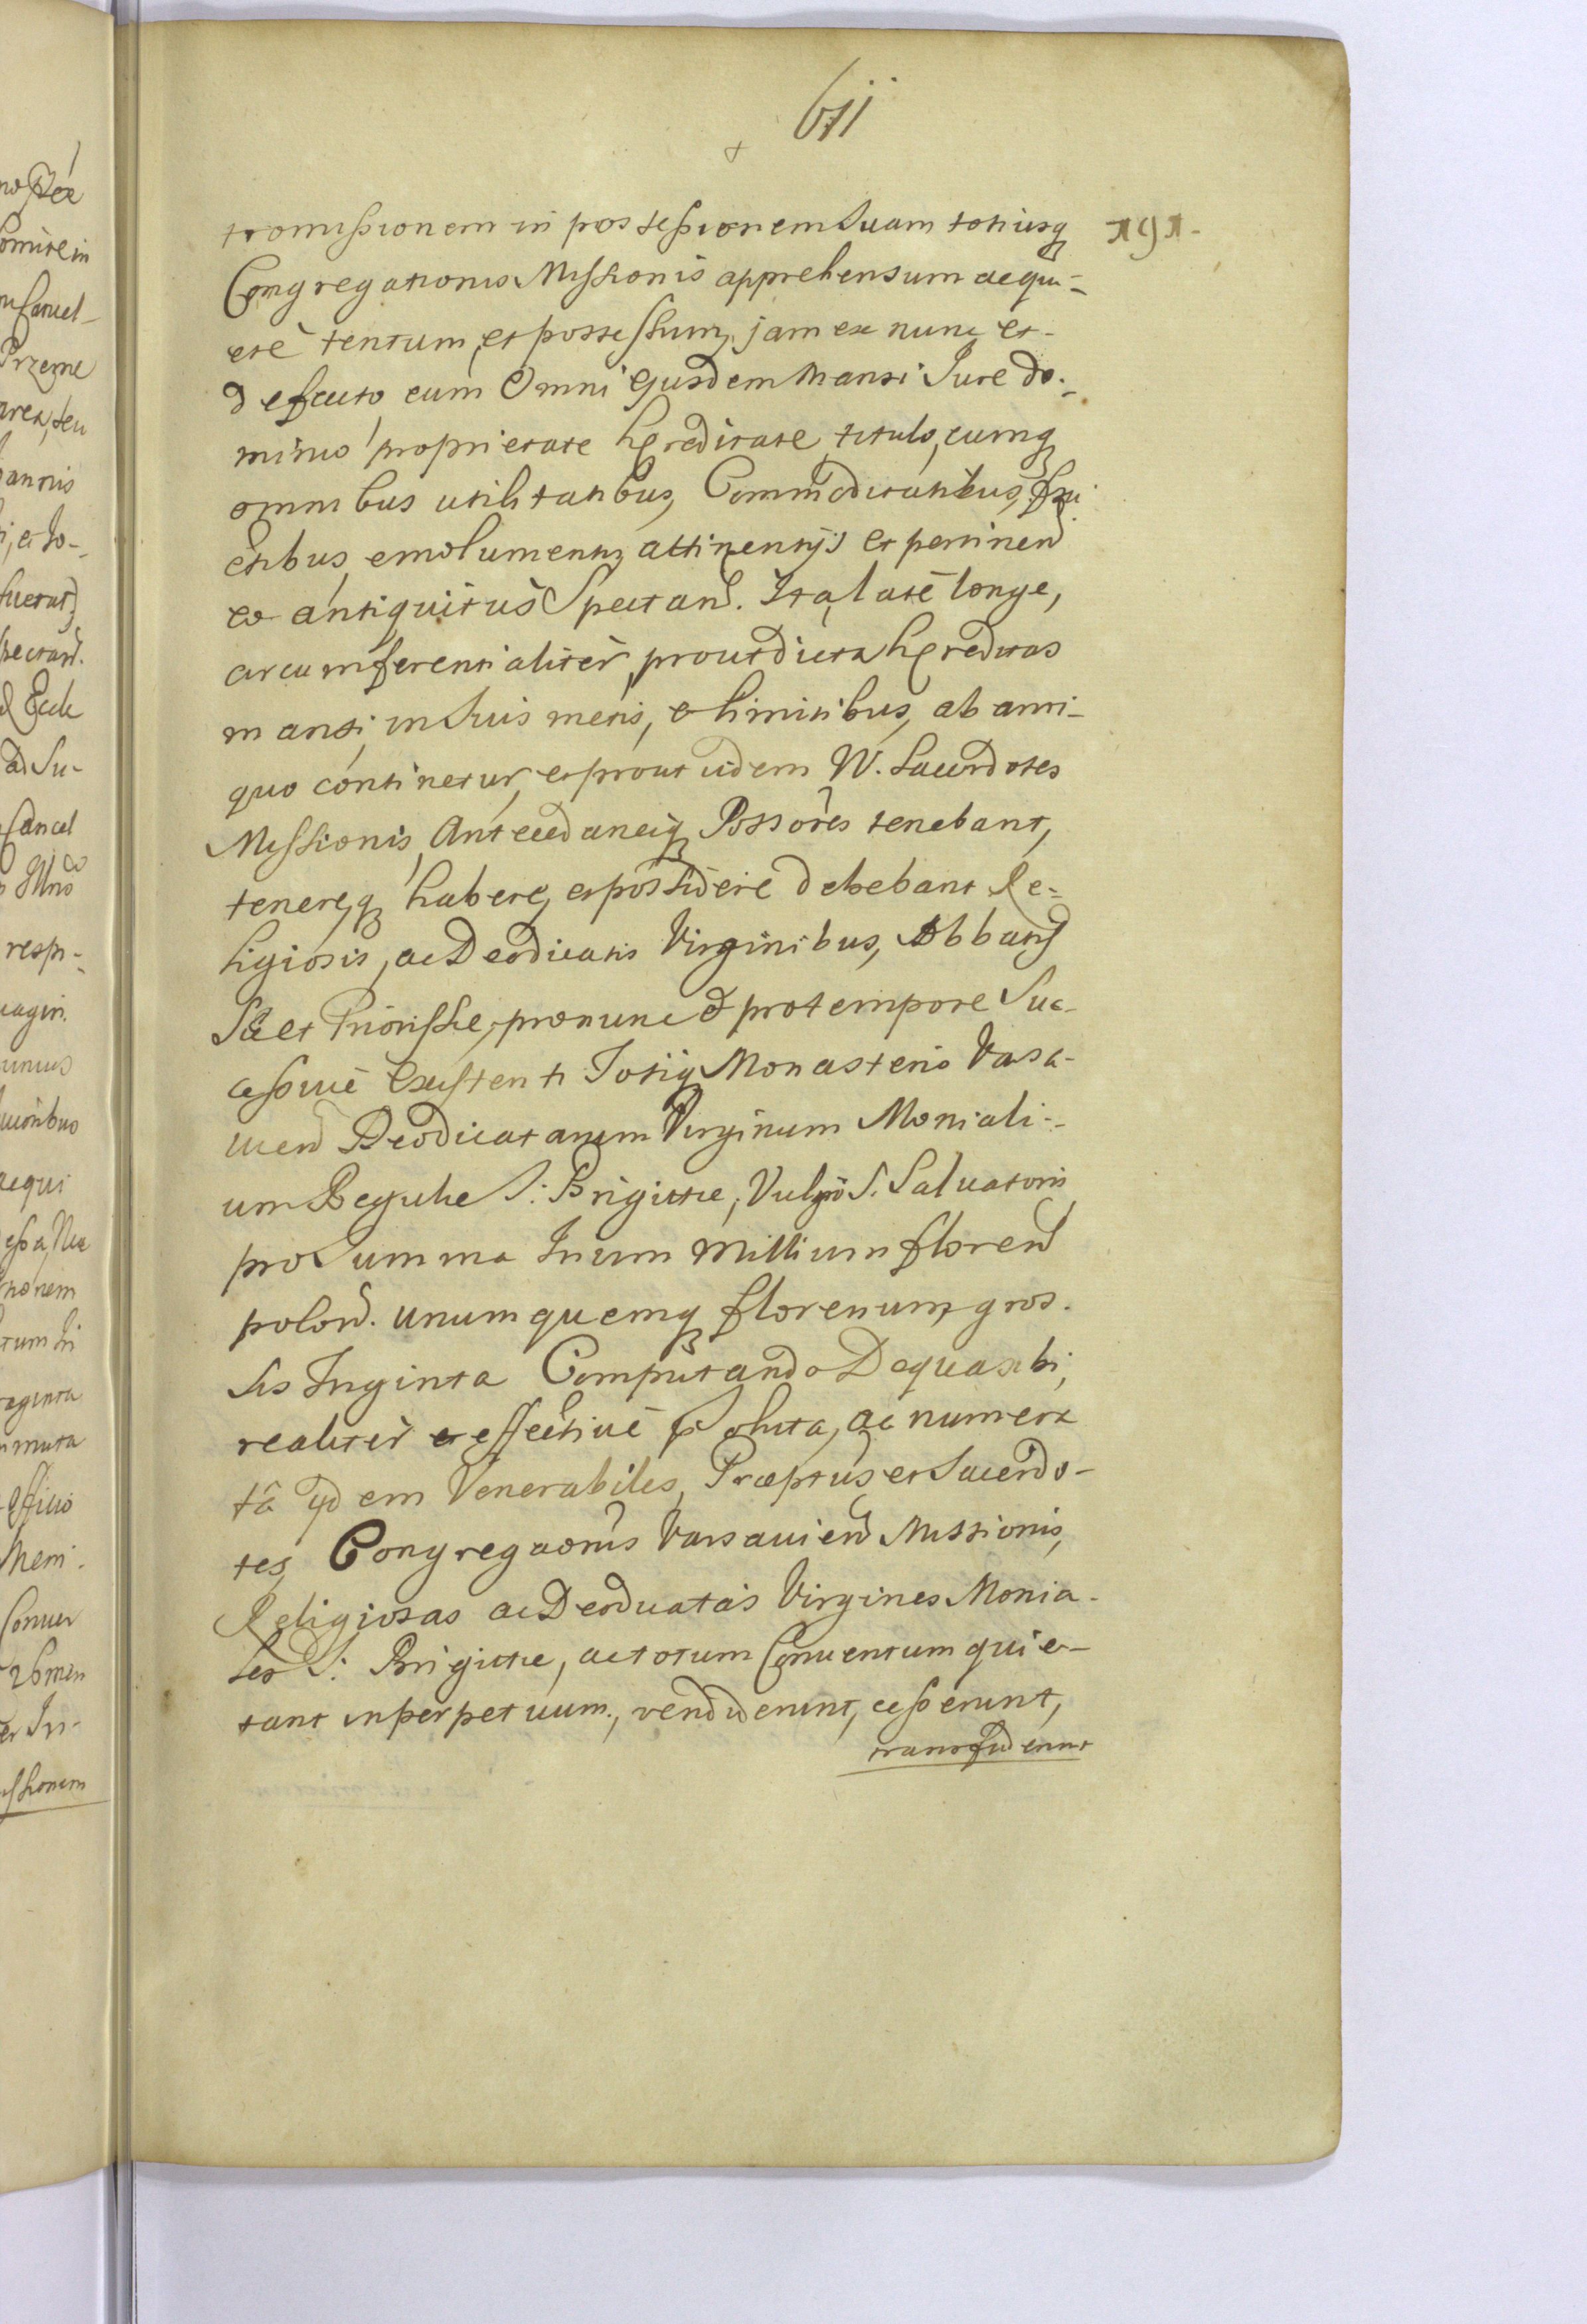 611
191.
tromissionem in possessionem Suam totiusq
Congregationis Missionis apprehensum ac qui-
etè tentum, et possessum, jam ex nunc et-
de facto cum Omni ejusdem mansi Jure do-
minio proprietate hęreditate titulo, cumq
omnibus utilitatibus, Commoditatibus, fru
ctibus, emolumentis attinentijs et pertinen
eo antiquitùs Spectan. Ita, latè longe,
circumferentialiter, prout dicta hęreditas
mansi, in Suis metis, et limitibus, ab anti-
quo continetur, et prout iidem W. Sacerdotes
Missionis Antecedaneiq Possores tenebant,
tenereq habere, et possidere debebant Re-
ligiosis, ac Deodicatis Virginibus, Abbatis
sæ et Priorissæ, pronunc et protempore Suc-
cessivè Existenti Totiq Monasterio Varsa-
uien Deodicatarum Virginum Moniali-
um Regulæ S: Brigittæ, Vulgò S. Saluatoris
pro Summa Trium Millium floren
polon. unumquemq florenum, gros-
sis Triginta Computando De quasibi,
realiter et effectiuè Soluta, ac numera
tâ ydem Venerabiles, Præptus et Sacerdo-
tes, Congregaonis Varsauien Missionis,
Religiosas ac Deodicatas Virgines Monia-
les S: Brigittæ, ac totum Conuentum quie-
tant inperpetuum, vendiderunt, cesserunt,
transfuderunt